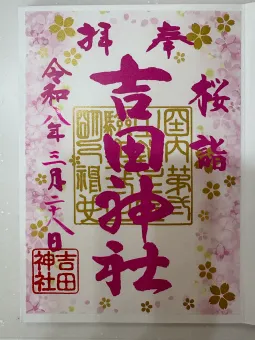 奉拝
桜詣
吉田神社
令和八年三月二八日
吉田神社